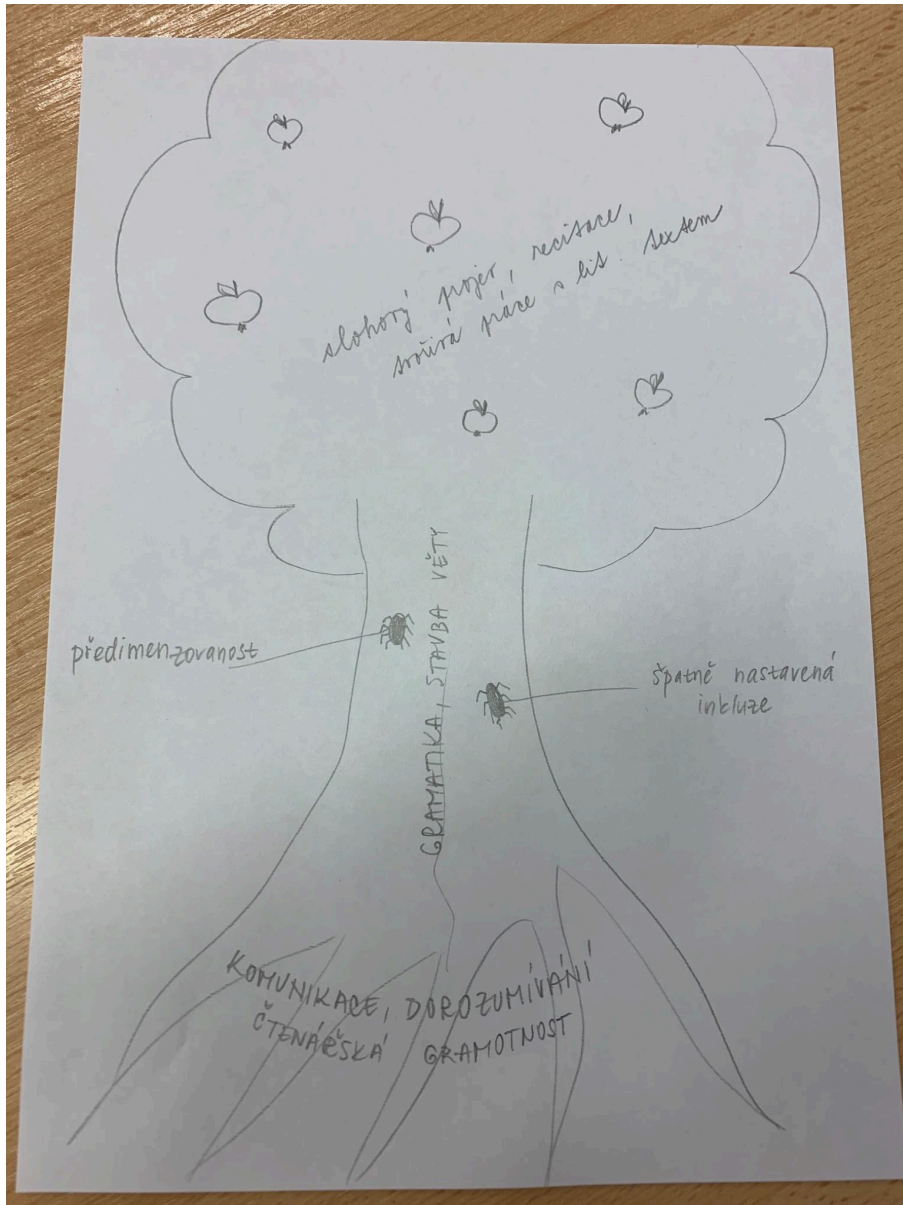 slohový projev, recitace,
tvořivá práce s lit. textem
GRAMATIKA, STAVBA VĚTY
předimenzovanost
špatně nastavená
inkluze
KOMUNIKACE, DOROZUMÍVÁNÍ
ČTENÁŘSKÁ GRAMOTNOST